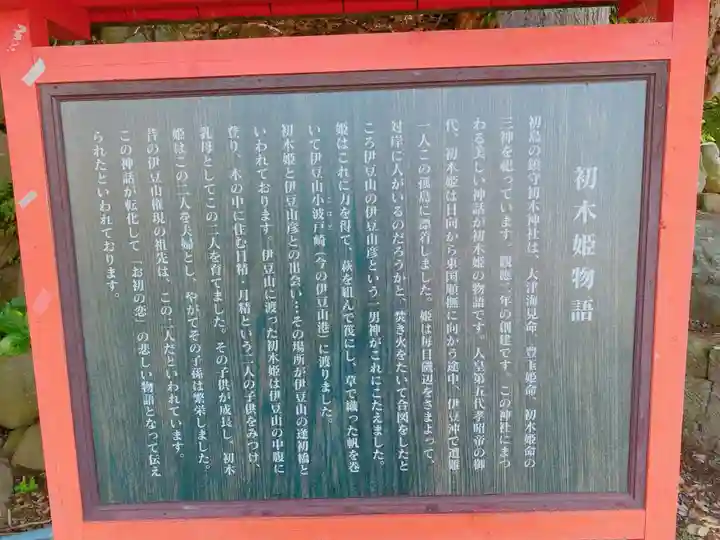 初木姫物語
初島の鎮守初木神社は、大津海見命、豊玉姫命、初木姫命の
三神を祀っています。観應二年の創建です。この神社にまつ
わる美しい神話が初木姫の物語です。人皇第五代孝昭帝の御
代、初木姫は日向から東国順撫に向かう途中、伊豆沖で遭難
一人この孤島に漂着しました。姫は毎日磯辺をさまよって、
対岸に人がいるのだろうかと、焚き火をたいて合図をしたと
ころ伊豆山の伊豆山彦という一男神がこれにこたえました。
姫はこれに力を得て、萩を組んで筏にし、草で織った帆を巻
いて伊豆山小波戸崎(今の伊豆山港)に渡りました。
初木姫と伊豆山彦との出会い…その場所が伊豆山の逢初橋と
いわれております。伊豆山に渡った初木姫は伊豆山の中腹に
登り、木の中に住む日精・月精という二人の子供をみつけ、
乳母としてこの二人を育てました。その子供が成長し、初木
姫はこの二人を夫婦とし、やがてその子孫は繁栄しました。
昔の伊豆山権現の祖先は、この二人だといわれています。
この神話が転化して「お初の恋」の悲しい物語となって伝え
られたといわれております。